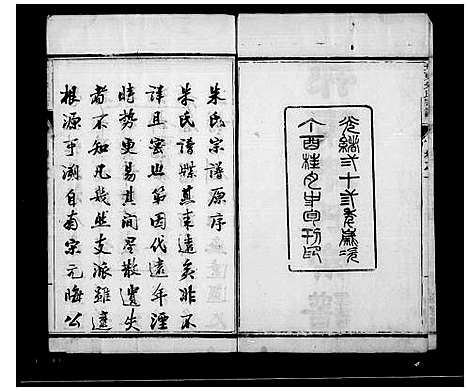 光緒弍十弎年歲次
丁酉桂月中旬刊印
朱氏宗譜原序
朱氏譜牒其来遠矣非不
詳且密也第因代遠年湮
時勢更易其間星散遺失
者不知凡幾然支派雖遠
根源可溯自南宋元晦公